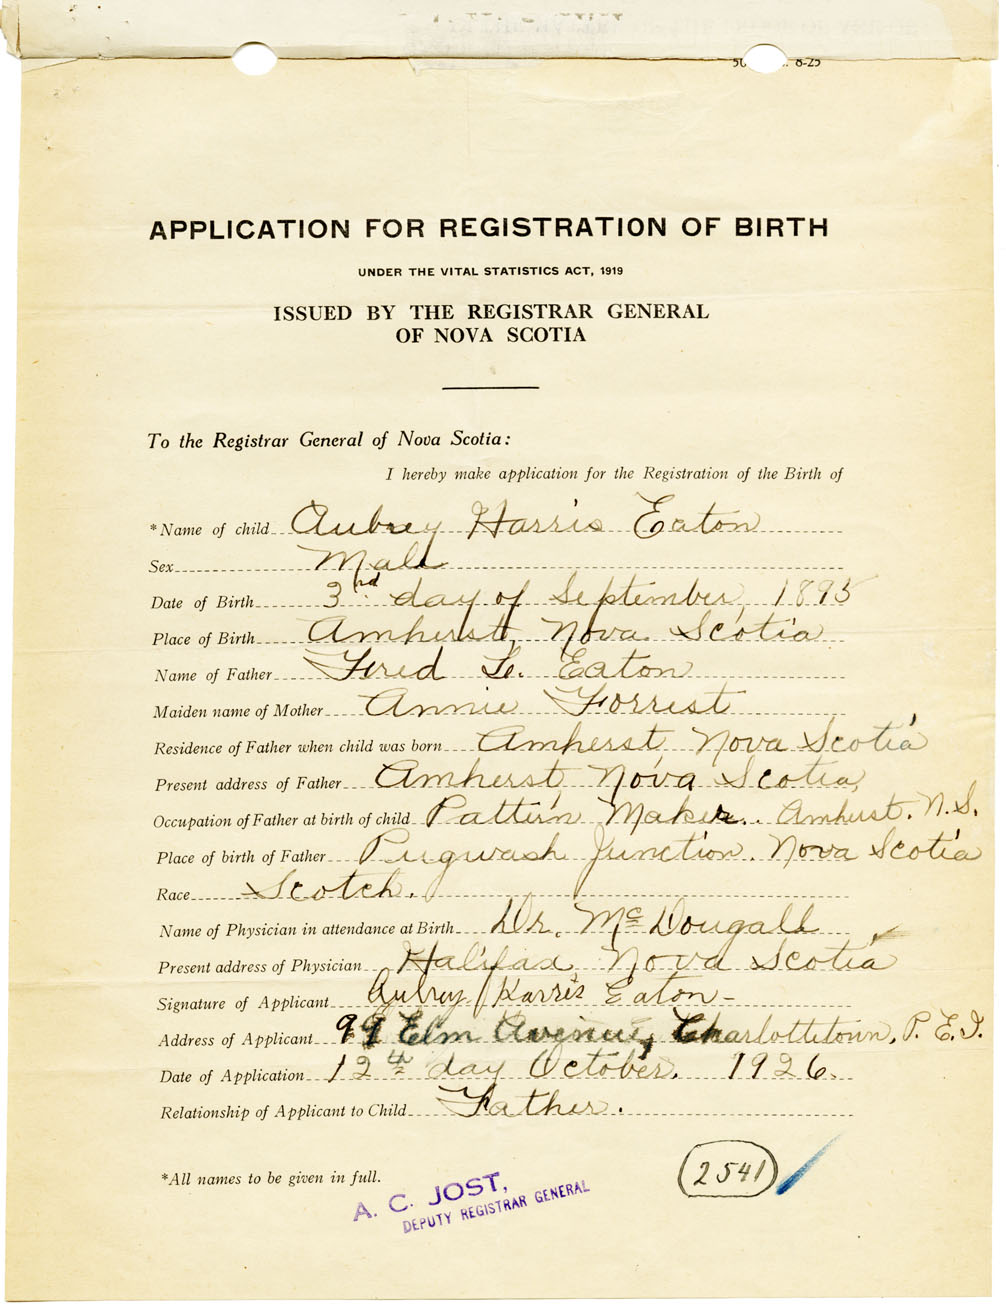 8-25
APPLICATION FOR REGISTRATION OF BIRTH
UNDER THE VITAL STATISTICS ACT, 1919
ISSUED BY THE REGISTRAR GENERAL
OF NOVA SCOTIA
To the Registrar General of Nova Scotia:
I hereby make application for the Registration of the Birth of
*Name of child Aubrey Harris Eaton
Sex Male
Date of Birth 3rd day of September, 1895
Place of Birth Amherst, Nova Scotia
Name of Father Fred L. Eaton
Maiden name of Mother Annie Forrest
Residence of Father when child was born Amherst, Nova Scotia
Present address of Father Amherst, Nova Scotia,
Occupation of Father at birth of child Pattern Maker. Amherst. N.S.
Place of birth of Father Pugwash Junction. Nova Scotia
Race Scotch.
Name of Physician in attendance at Birth Dr. McDougall
Present address of Physician Halifax, Nova Scotia
Signature of Applicant Aubrey Harris Eaton -
Address of Applicant 99 Elm Avenue, Charlottetown, P.E.I.
Date of Application 12th day October. 1926.
Relationship of Applicant to Child Father.
*All names to be given in full.
2541
A. C. JOST,
DEPUTY REGISTRAR GENERAL